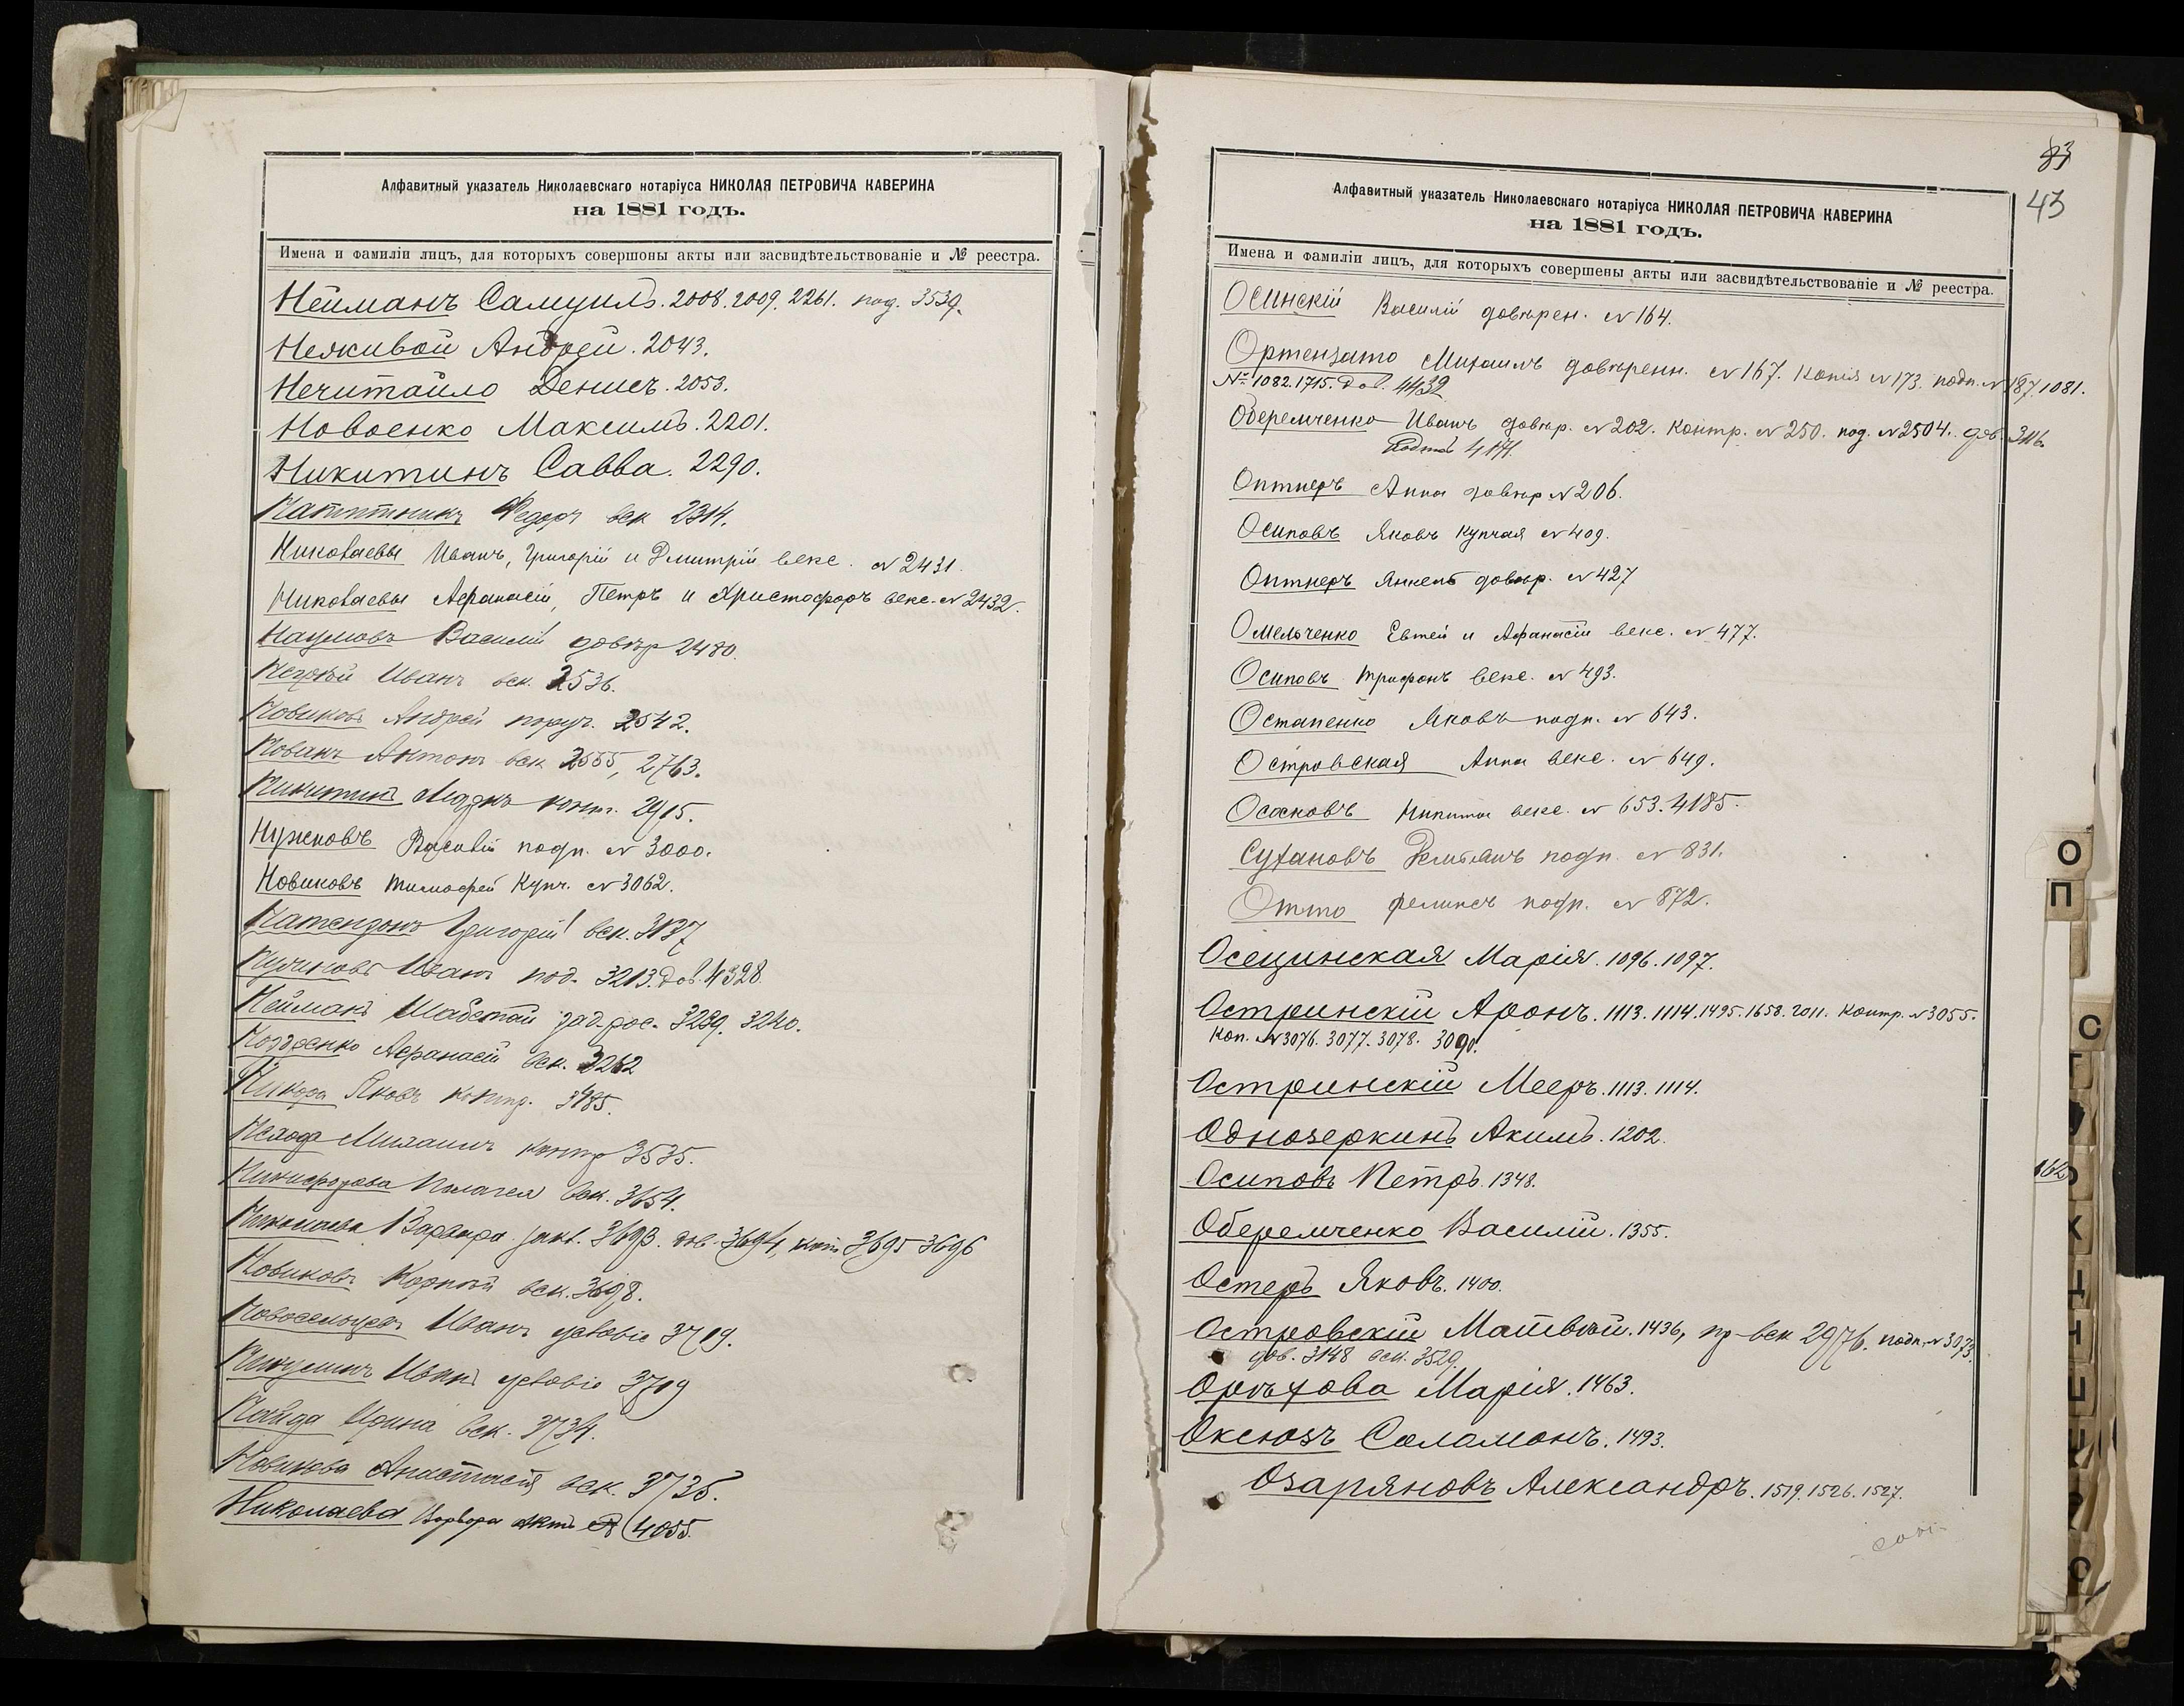 Алфавитный указатель Николаевскаго нотаріуса НИКОЛАЯ ПЕТРОВИЧА КАВЕРИНА
на 1881 годъ.
Имена и фамиліи лицъ, для которыхъ совершоны акты или засвидѣтельствованіе и № реестра.
Нейманъ Самуилъ. 2008. 2009. 2261. под. 3539.
Неживой Андрей. 2043.
Нечитайло Денисъ. 2053.
Новоенко Максимъ. 2201.
Никитинъ Савва. 2290.
Федоръ век 2314.
Николаевы Иванъ, Григорій и Дмитрій векс. № 2431.
Николаевы Афанасій, Петръ и Христофоръ векс. № 2432.
Наумовъ Василій довѣр 2480.
Иванъ век. 2536.
Новиковъ Андрей поруч. 2542.
Новакъ Антонъ век 2555, 2763.
Никитинъ контр. 2915.
Нужновъ Василій подп. № 3000.
Новиковъ Тимофей Купч. № 3062.
Натензонъ Григорій век. 3137
Иванъ под. 3213. Дов. 4328
Нейманъ Шабетай 3239. 3240.
Афанасій век. 3262
Никора Яковъ контр. 3485.
Нехода Михаилъ контр 3535.
Никифорова Пелагея век. 3654.
Николаева Варвара 3693. дов. 3694, коп 3695 3696
Новиковъ Корній век. 3698.
Новоселецкій Иванъ условіе 3709.
Иванъ условіе 3709
Найда Ирина век. 3734.
Новикова Анастасія век. 3735.
Николаева Варвара актъ № 4055.
83
43
Алфавитный указатель Николаевскаго нотаріуса НИКОЛАЯ ПЕТРОВИЧА КАВЕРИНА
на 1881 годъ.
Имена и фамиліи лицъ, для которыхъ совершены акты или засвидѣтельствованіе и № реестра.
Осинскій Василій довѣрен. № 164.
Ортензато Михаилъ довѣренн. № 167. Копія № 173. подп. № 187. 1081.
№ 1082. 1715. Дов. 4432
Оберемченко Иванъ довѣр. № 202. Контр. № 250. под. № 2504. дов. 3116
Оптнеръ Анна довѣр № 206.
Осиповъ Яковъ Купчая № 409.
Оптнеръ Янкель довѣр. № 427
Омельченко Евтей и Афанасій векс. № 477.
Осиповъ Трифонъ векс. № 493.
Остапенко Яковъ подп. № 643.
Островская Анна векс. № 649.
Осаковъ Никита векс. № 653. 4185.
Сухановъ подп. № 831.
Отто феликсъ подп. № 872.
Осецинская Марія. 1096. 1097.
Остринскій Аронъ. 1113. 1114. 1495. 1658. 2011. Контр. № 3055.
Коп. № 3076. 3077. 3078. 3090.
Остринскій Мееръ. 1113. 1114.
Однозеркинъ Акимъ. 1202.
Осиповъ Петръ. 1348.
Оберемченко Василій. 1355.
Остеръ Яковъ. 1400.
Островскій Матвѣй. 1436, пр-век 2976. подп. № 3073.
дов. 3148 век. 3529.
Орѣхова Марія. 1463.
Оксюзъ Саламонъ. 1493.
Озаряновъ Александръ. 1519. 1526. 1527.
О
П
С